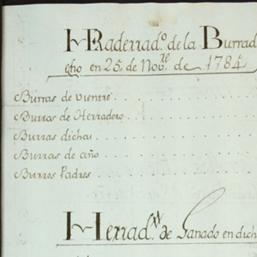 Herradᵒ. de la Burrad
en 25 de Novʳᵉ. de 1784
Burras de vientre
Burras de Herradero
Burras dichas
Burras de año
Burros Padres
Herradᵒ. de Ganado en dich